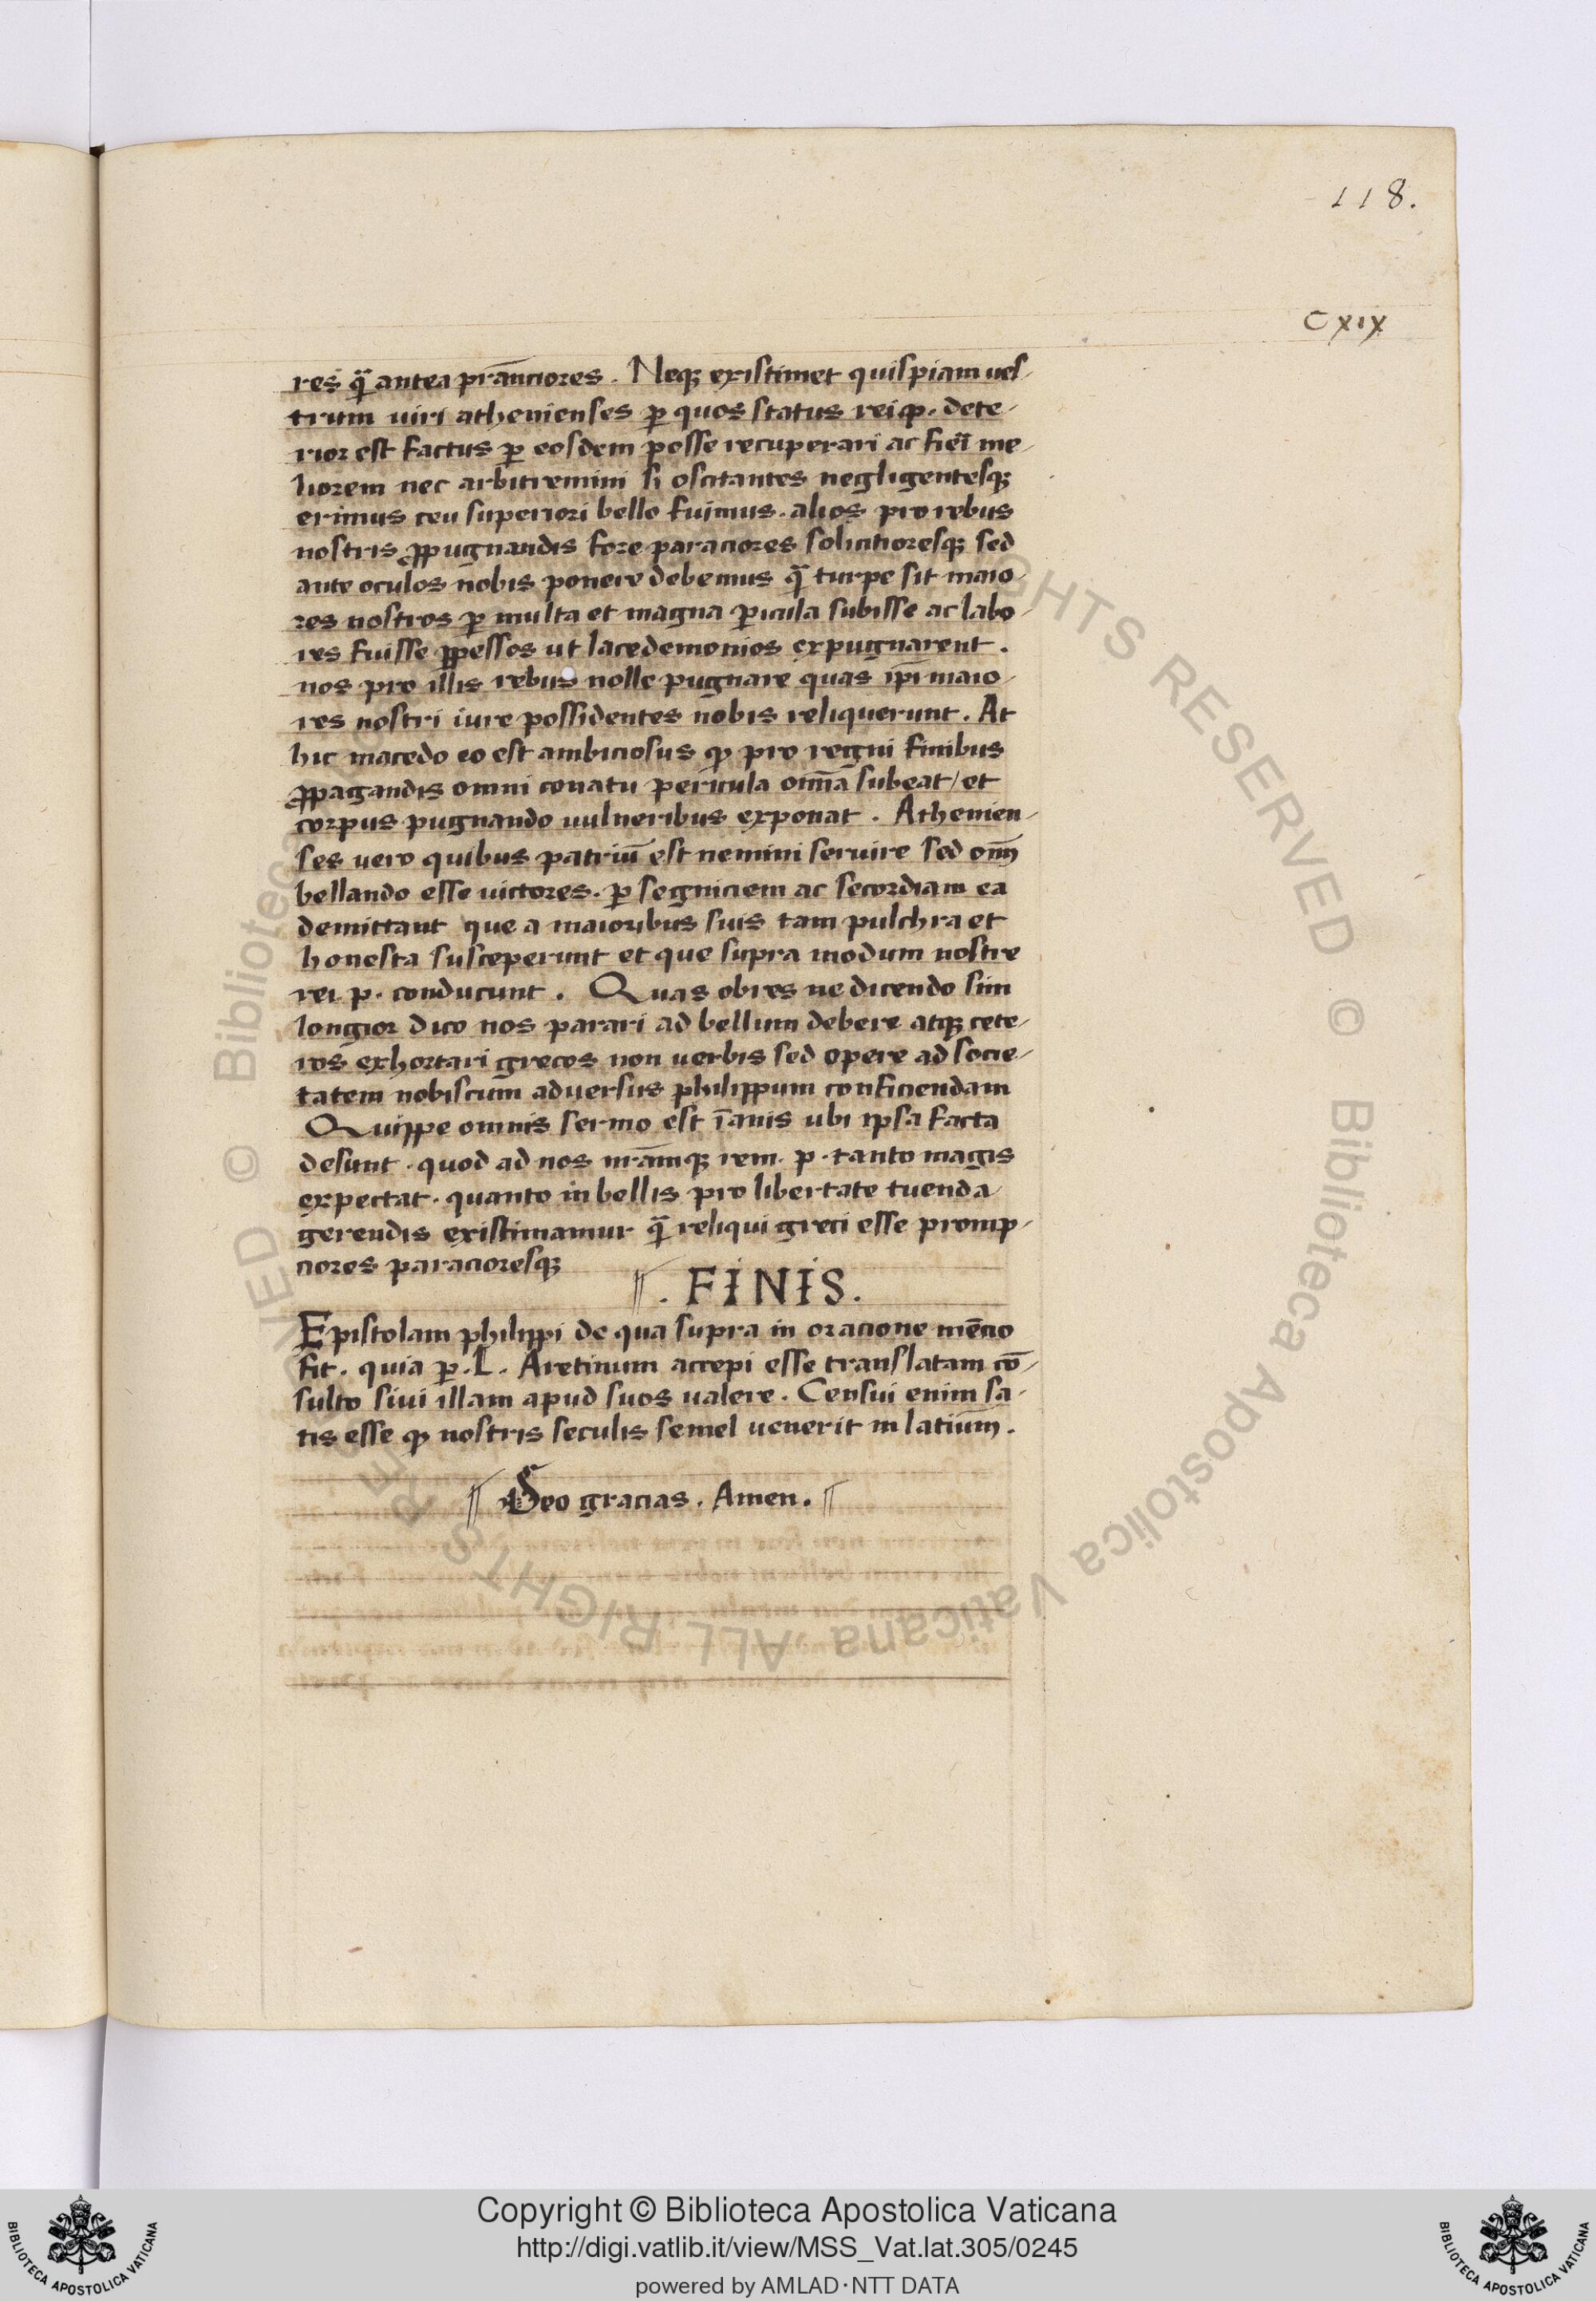 118.
CXIX
res q̄ antea prāciores. Neqꝫ existimet quispiam ues-
trum uiri athenienses ꝑ quos status rei p. dete-
rior est factus ꝑ eosdem posse recuperari ac fiēī me-
liorem nec arbitremini si oscitantes negligentesqꝫ
erimus ceu superiori bello fuimus. alios pro rebus
nostris ꝓpugnandis fore paraciores solicitioresqꝫ sed
ante oculos nobis ponere debemus q̄ turpe sit maio-
res nostros ꝑ multa et magna ꝑicula subisse ac labo-
res fuisse ꝑpessos ut lacedemonios expugnarent.
nos pro illis rebus nolle pugnare quas ip̄i maio-
res nostri iure possidentes nobis reliquerunt. At
hic macedo eo est ambiciosus qꝫ pro regni finibus
ꝓpagandis omni conatu pericula om̄ia subeat / et
corpus pugnando uulneribus exponat. Athenien-
ses uero quibus patriū est nemini seruire sed om̄
bellando esse uictores. ꝑ segniciem ac secordiam ea
demittant que a maioribus suis tam pulchra et
honesta susceperunt et que supra modum nostre
rei. p. conducunt. Quas ob res ne dicendo sim
longior dico nos parari ad bellum debere atqꝫ cete-
ros exhortari grecos non uerbis sed opere ad socie-
tatem nobiscum aduersus philippum conficiendam
Quippe omnis sermo est īanis ubi ipsa facta
desunt. quod ad nos nr̄amqꝫ rem. p. tanto magis
expectat. quanto in bellis pro libertate tuenda
gerendis existimamur q̄ reliqui greci esse promp-
ciores paracioresqꝫ
. FINIS.
Epistolam philippi de qua supra in oracione mēcio
fit. quia ꝑ. L. Aretinum accepi esse translatam cō-
sulto siui illam apud suos ualere. Censui enim sa-
tis esse qꝫ nostris seculis semel uenerit in latium.
Deo gracias. Amen.
© Biblioteca Apostolica Vaticana ALL RIGHTS RESERVED © Biblioteca Apostolica Vaticana ALL RIGHTS RESERVED
Copyright © Biblioteca Apostolica Vaticana
http://digi.vatlib.it/view/MSS_Vat.lat.305/0245
powered by AMLAD·NTT DATA
BIBLIOTECA APOSTOLICA VATICANA
BIBLIOTECA APOSTOLICA VATICANA